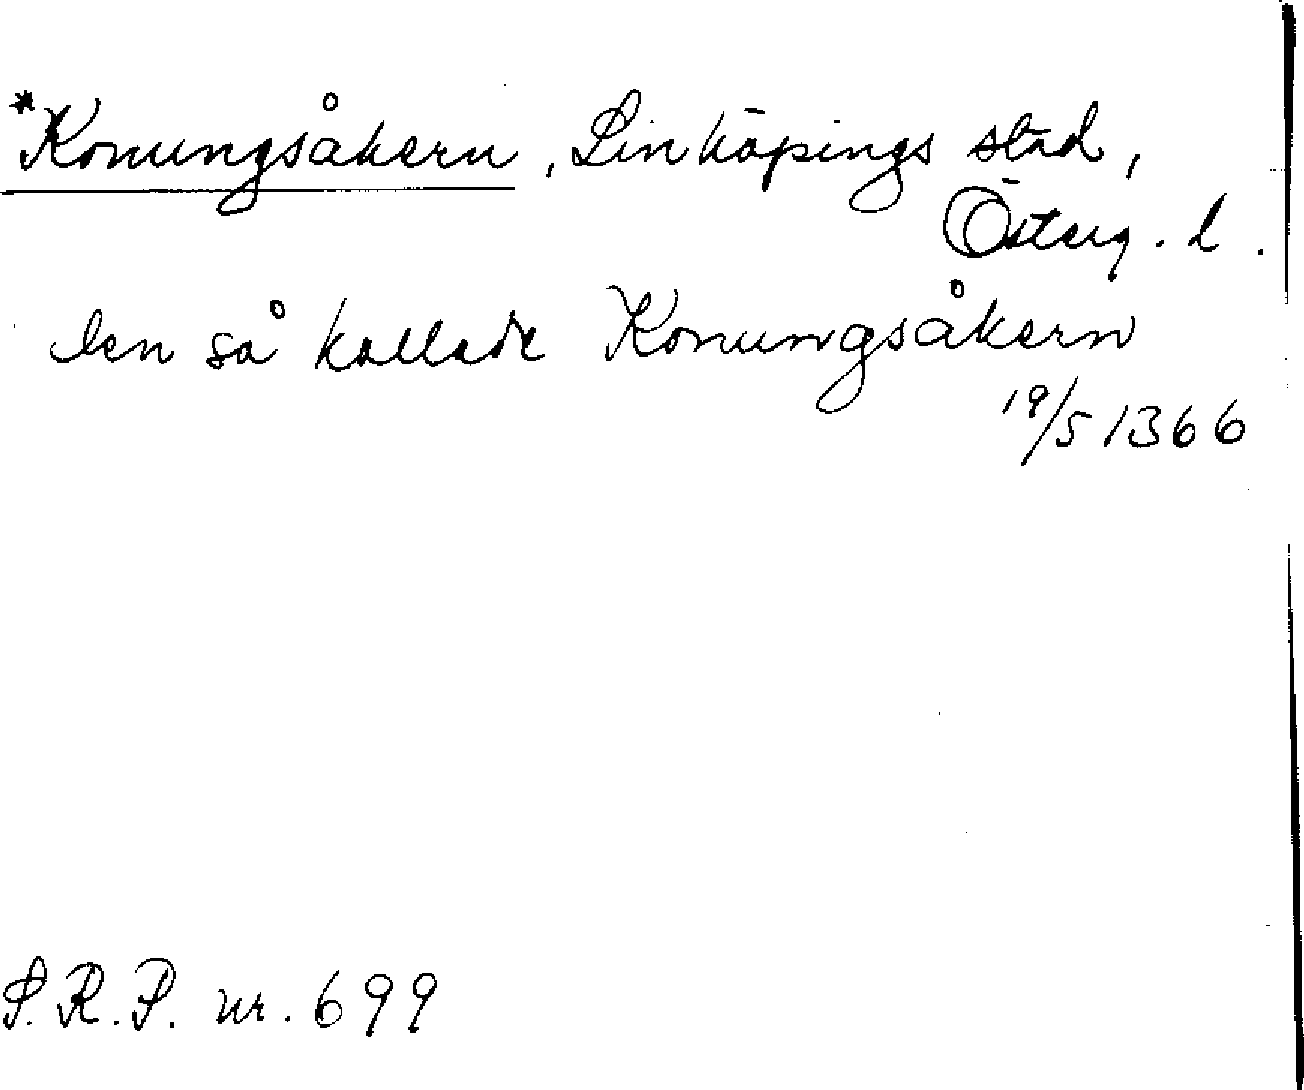 *Konungsåkern, Linköpings stad,
Österg. l.
den så kallade Konungsåkern
19/5 1366
S.R.P. nr. 699